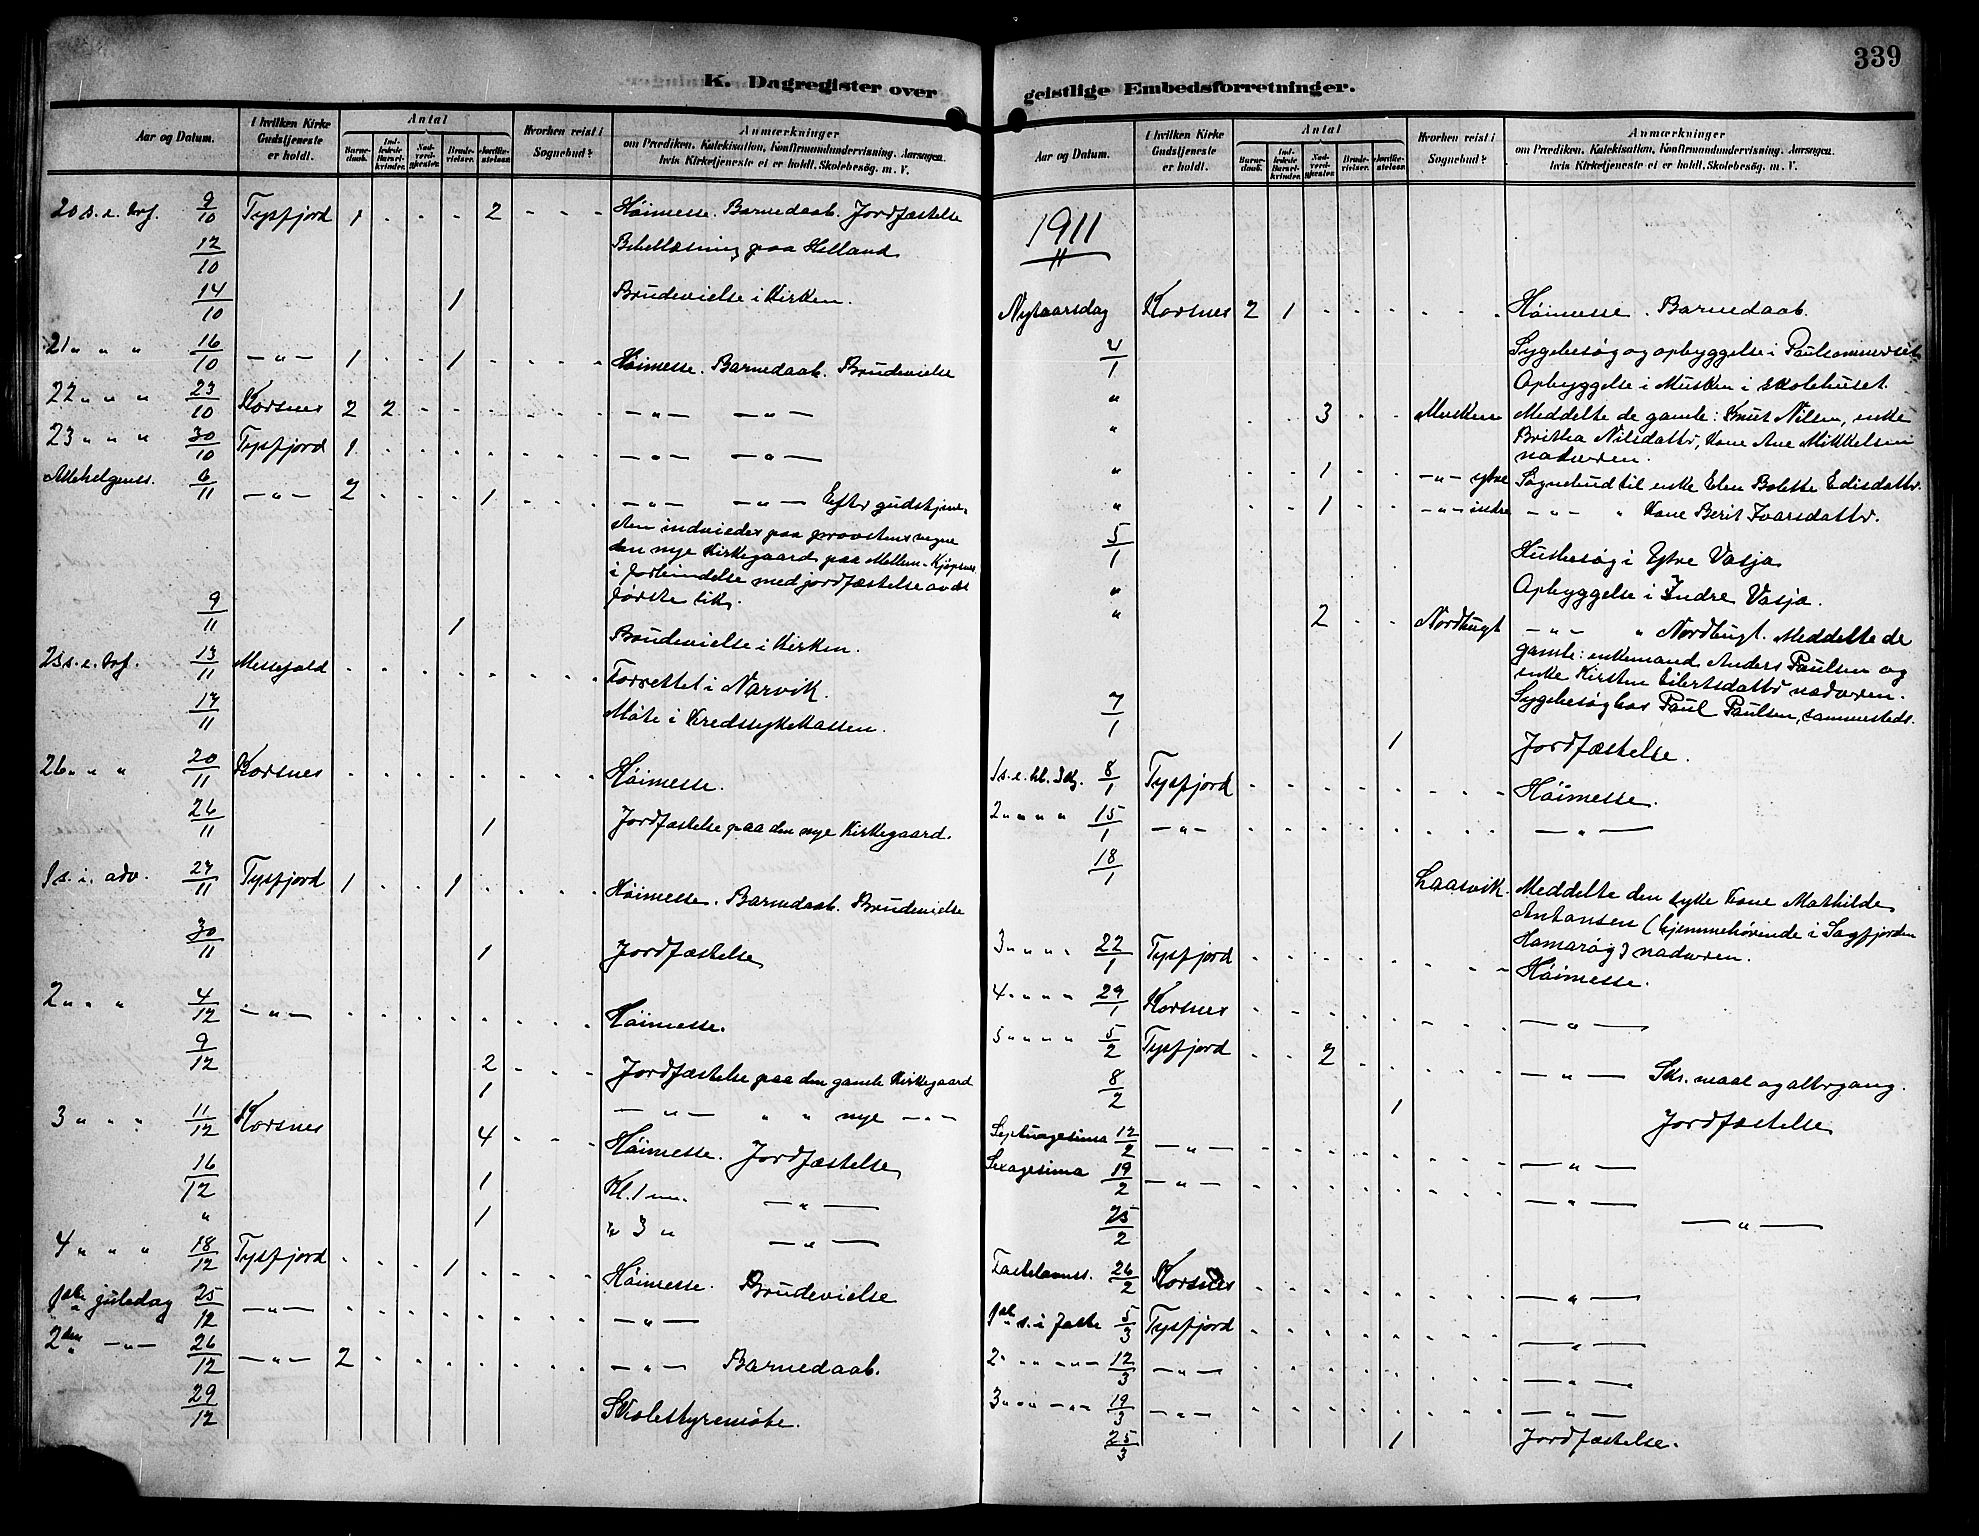 339
K. Dagregister over
Aar og Datum. I hvilken Kirke Gudstjeneste er holdt. Antal Barnedaab. Indledede Barselkvinder. Nadverdgjester. Brudevielser. Jordfæstelser. Hvorhen reist i Sognebud? Anmærkninger
om Prædiken, Katekisation, Konfirmandundervisning, Aarsagen, hvis Kirketjeneste ei er holdt, Skolebesøg m. V.
20 s. e. trf. 9/10 Tysfjord 1 . . . 2 . . . Høimesse. Barnedaab. Jordfæstelse
12/10 Bibellæsning paa Helland
14/10 1 Brudevielse i Kirken.
21 " " " 16/10 — " — 1 . . 1 . . . . Høimesse. Barnedaab. Brudevielse
22 " " " 23/10 Korsnes 2 2 . . . . . . — " — — " —
23 " " " 30/10 Tysfjord 1 . . . . . . . — " — — " —
Allehelgenss. 6/11 — " — 2 . . . 1 . . . — " — — " — Efter gudstjene-
sten indviedes paa provstens vegne
den nye Kirkegaard paa Mellem-Kjøpsnes
i forbindelse med jordfæstelse av det
første lik.
9/11 1 Brudevielse i Kirken.
25 s. e. trf. 13/11 Messefald . . . . . . . . Forrettet i Narvik.
17/11 Møte i Kredssykekassen.
26 " " " 20/11 Korsnes . . . . . . . . Høimesse.
26/11 1 Jordfæstelse paa den nye Kirkegaard.
1 s. i. adv. 27/11 Tysfjord 1 . . 1 . . . . Høimesse. Barnedaab. Brudevielse
30/11 1 Jordfæstelse
2 " " " 4/12 — " — . . . . . . . . Høimesse.
9/12 2 . . . Jordfæstelse paa den gamle Kirkegaard
1 — " — " " nye — " —
3 " " " 11/12 Korsnes 4 . . . Høimesse. Jordfæstelse
16/12 1 Kl. 1 — " —
" 1 " 3 " — " —
4 " " " 18/12 Tysfjord . . . 1 . . . . Høimesse. Brudevielse
1ste juledag 25/12 — " — . . . . . . . . — " —
2den — " — 26/12 — " — 2 . . . . . . . — " — Barnedaab.
29/12 Skolestyremøte.
geistlige Embedsforretninger.
Aar og Datum. I hvilken Kirke Gudstjeneste er holdt. Antal Barnedaab. Indledede Barselkvinder. Nadverdgjester. Brudevielser. Jordfæstelser. Hvorhen reist i Sognebud? Anmærkninger
om Prædiken, Katekisation, Konfirmandundervisning, Aarsagen, hvis Kirketjeneste ei er holdt, Skolebesøg m. V.
1911
Nytaarsdag Korsnes 2 1 . . . . . . Høimesse. Barnedaab.
4/1 Sygebesøg og opbyggelse i
" Opbyggelse i Musken i skolehuset.
" . . 3 . . Musken Meddelte de gamle: Knut Nilsen, enke
Britha Nilsdattr, Kone Ane Mikkelsen
nadveren.
" . . 1 . . — " — ytre Sognebud til enke Elen Bolette Edisdattr.
" . . 1 . . — " — indre — " — " Kone Berit Ivarsdattr.
5/1 Husbesøg i Ytre Vasja
" Opbyggelse i Indre Vasja.
" 2 . . Nordbugt — " — " Nordbugt. Meddelte de
gamle: enkemand Anders Paulsen og
enke Kirsten Eilertsdattr nadveren.
Sygebesøg hos Paul Paulsen, sammesteds.
7/1 1 Jordfæstelse.
1 s. e. hl. 3 kg. 8/1 Tysfjord . . . . . . . . Høimesse.
2 " " " " 15/1 — " — . . . . . . . . — " —
18/1 Laasvik. Meddelte den syke Kone Mathilde
Antonsen (hjemmehørende i Sagfjorden
Hamarøy) nadveren.
3 " " " " 22/1 Tysfjord . . . . . . . . Høimesse.
4 " " " " 29/1 Korsnes . . . . . . . . — " —
5 " " " " 5/2 Tysfjord . . 2 . . . . . — " — Skr. maal og altergang.
8/2 1 Jordfæstelse
Septuagesima 12/2 — " — . . . . . . . . — " —
Sexagesima 19/2 — " — . . . . . . . . — " —
25/2 — " —
Fastelavnss. 26/2 Korsnes . . . . . . . . — " —
1ste s. i faste 5/3 Tysfjord . . . . . . . . — " —
2 " " " — " — 12/3 — " — . . . . . . . . — " —
3 " " " — " — 19/3 — " — . . . . . . . . — " —
25/3 1 Jordfæstelse.